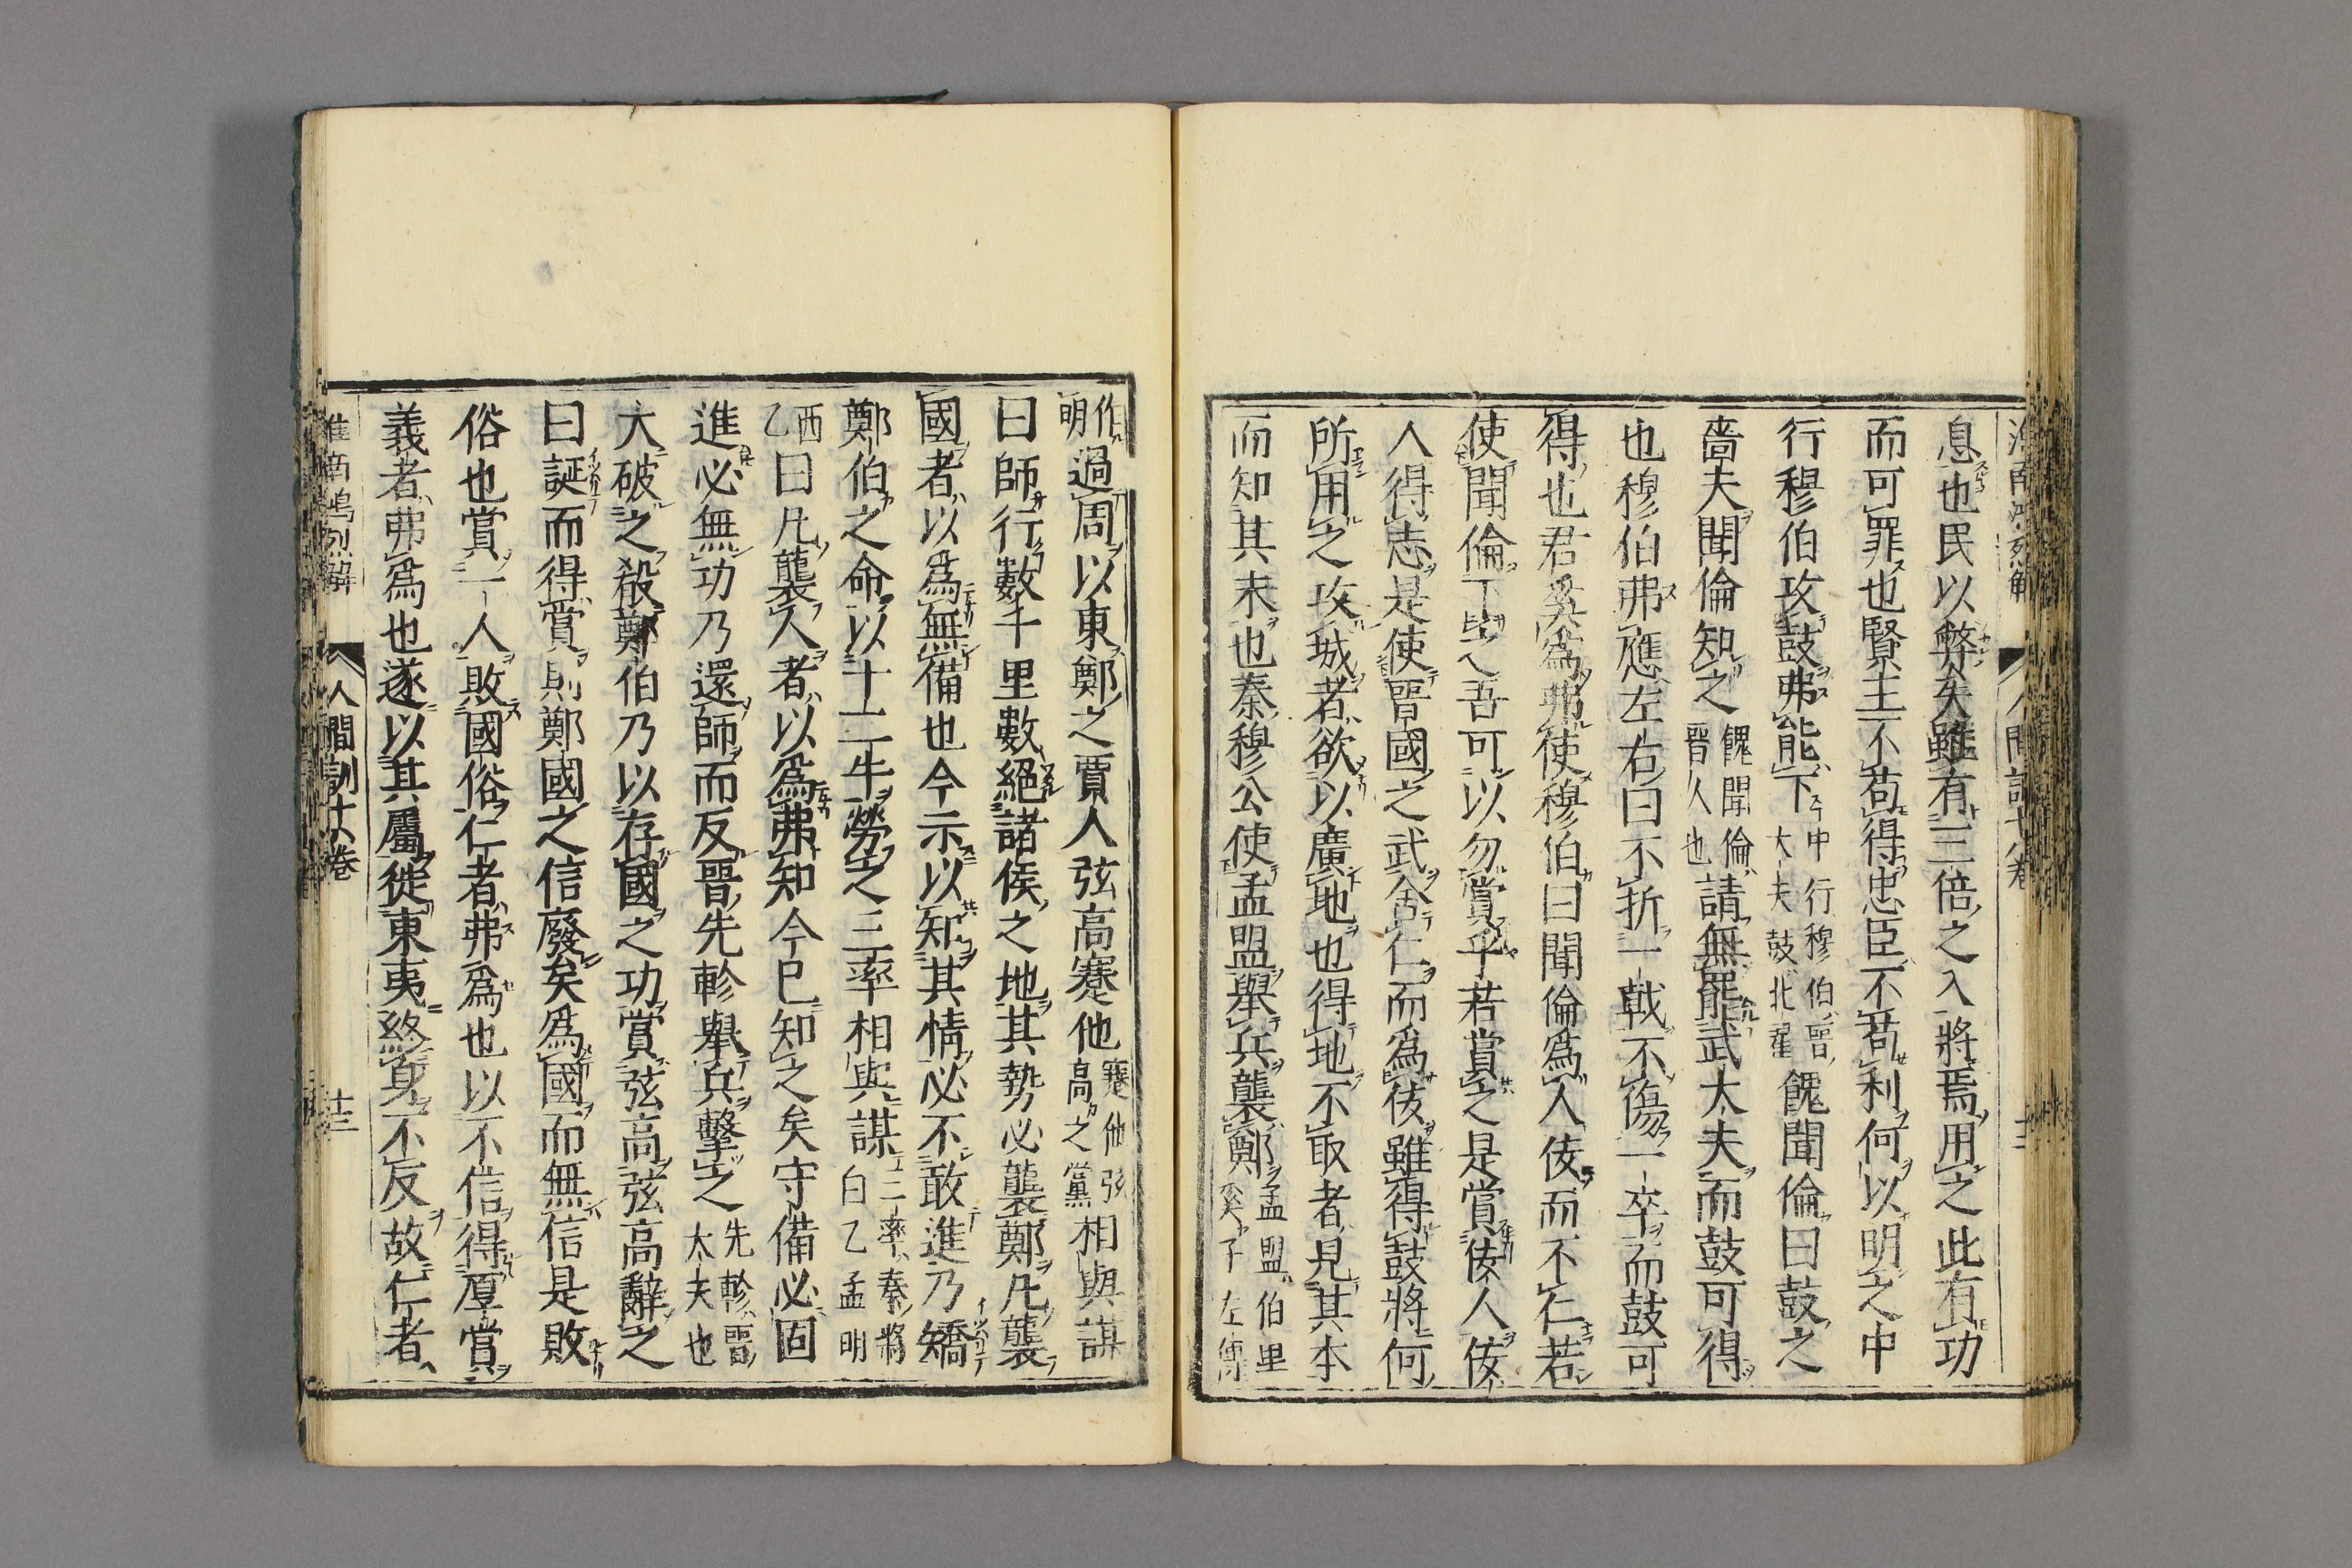 息也民以弊矣雖有三倍之入將焉用之此有功
而可罪也賢主不苟得忠臣不苟利何以明之中
行穆伯攻鼓弗能下中行穆伯晉大夫鼓北翟餽聞倫曰鼓之
嗇夫聞倫知之餽聞倫晉人也請無罷武大夫而鼓可得
也穆伯弗應左右曰不折一戟不傷一卒而鼓可
得也君奚爲弗使穆伯曰聞倫爲人佞而不仁若
使聞倫下之吾可以勿賞乎若賞之是賞佞人佞
人得志是使晉國之武舍仁而爲佞雖得鼓將何
所用之攻城者欲以廣地也得地不取者見其本
而知其末也秦穆公使孟盟舉兵襲鄭孟盟伯里奚子左傳
作明過周以東鄭之賈人弦高蹇他蹇他弦高之黨相與謀
曰師行數千里數絕諸侯之地其勢必襲鄭凡襲
國者以爲無備也今示以知其情必不敢進乃矯
鄭伯之命以十二牛勞之三率相與謀三率秦將白乙孟明
西乙曰凡襲人者以爲弗知今已知之矣守備必固
進必無功乃還師而反晉先軫舉兵擊之先軫晉大夫也
大破之殽鄭伯乃以存國之功賞弦高弦高辭之
曰誕而得賞則鄭國之信廢矣爲國而無信是敗
俗也賞一人敗國俗仁者弗爲也以不信得厚賞
義者弗爲也遂以其屬徙東夷終身不反故仁者
人間訓十八卷
十三